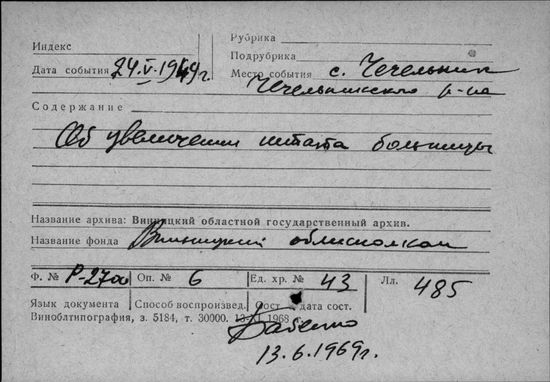 Индекс
Рубрика
Подрубрика
Дата события 24.V.1949 г.
Место события с. Чечельник
Чечельникского р-на
Содержание
Об увеличении штата больницы
Название архива: Винницкий областной государственный архив.
Название фонда Винницкий облисполком
Ф. № Р-2700 Оп. № 6 Ед. хр. № 43 Лл. 485
Язык документа Способ воспроизвед. Сост. дата сост.
Виноблтипография, з. 5184, т. 30000. 13-XI 1968 г.
13.6.1969 г.